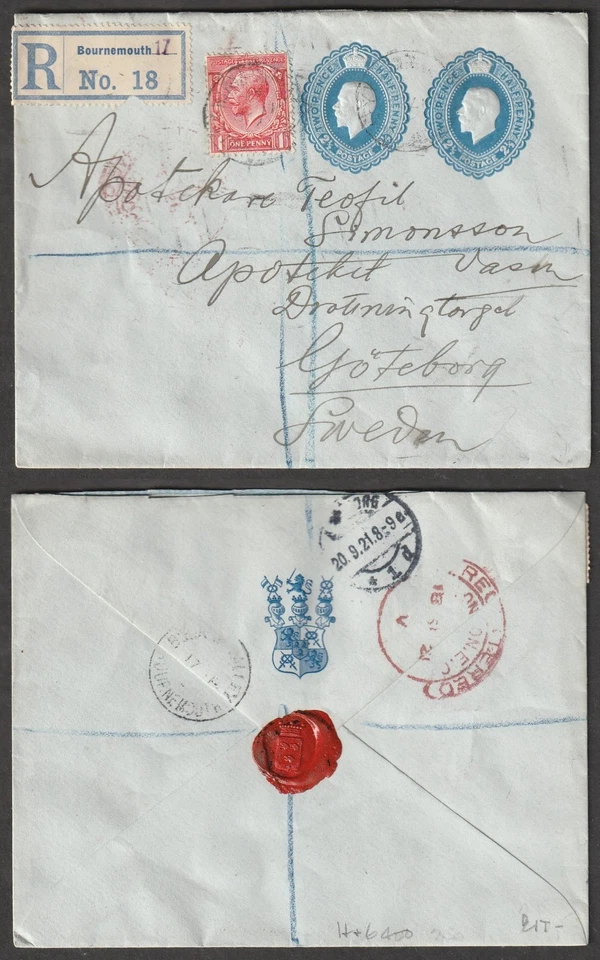 Bournemouth 17
R No. 18
POSTAGE REVENUE
ONE PENNY
TWO PENCE HALFPENNY
2½ POSTAGE 2½
TWO PENCE HALFPENNY
2½ POSTAGE 2½
Apotekare Teofil
Simonsson
Apoteket Vasen
Drottningtorget
Göteborg
Sweden
20.9.21.8-9
BOURNEMOUTH
REGISTERED
LONDON E.C.